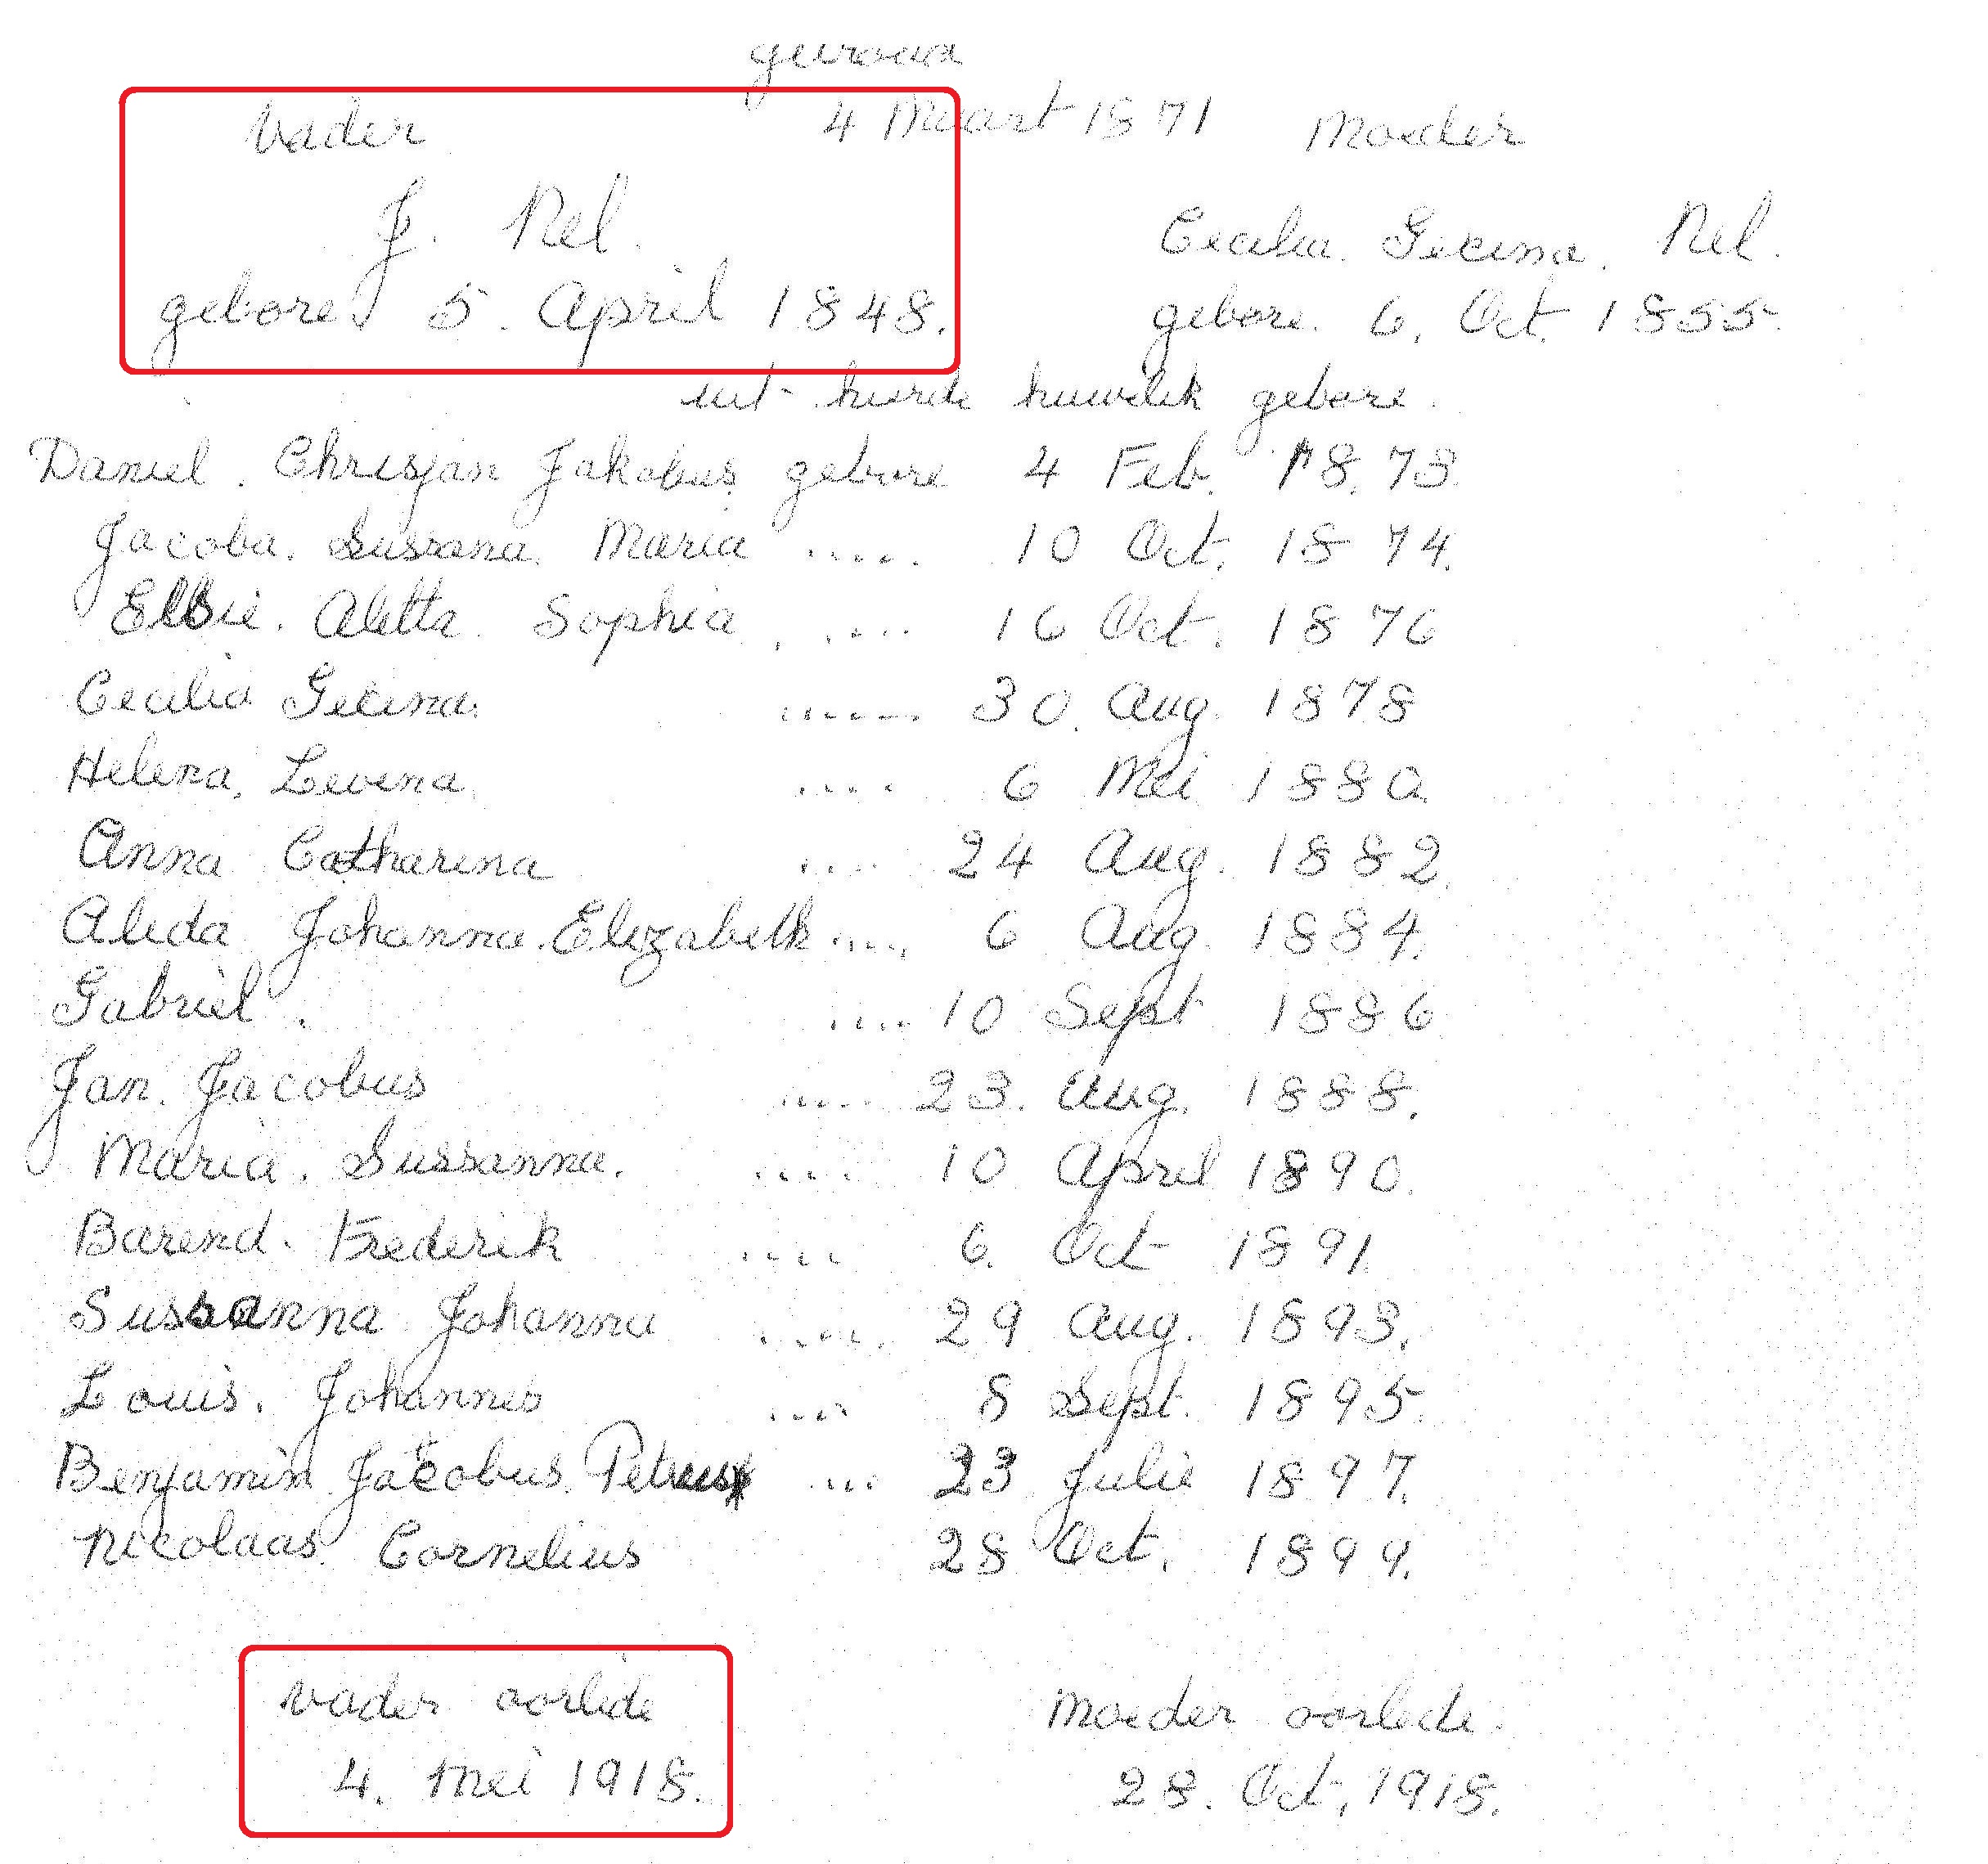 getroud
Vader 4 Maart 1871 Moeder
J. Nel. Cecilia. Gecina. Nel.
gebore 5. April 1848. gebore. 6. Oct. 1855.
uit hierde huwelik gebore.
Daniel. Chrisjan Jakobus gebore 4 Feb. 1873.
Jacoba. Sussana. Maria .... 10 Oct. 1874.
Elsie. Aletta. Sophia .... 16 Oct. 1876
Cecilia Gecina ...... 30. Aug. 1878
Helena. Levina .... 6 Mei 1880.
Anna Catharina .... 24 Aug. 1882.
Aleda Johanna. Elizabeth .... 6 Aug. 1884.
Gabriel. .... 10 Sept 1886
Jan. Jacobus ..... 23. Aug. 1888.
Maria. Sussanna. .... 10 April 1890.
Barend. Frederik .... 6. Oct 1891.
Sussanna Johanna ..... 29 Aug. 1893.
Louis. Johannes .... 8 Sept. 1895.
Benjamin Jacobus. Petrus ... 23 Julie 1897.
Nicolaas Cornelius 28 Oct. 1899.
vader oorlede moeder oorlede.
4. Mei 1918. 28. Oct, 1918.